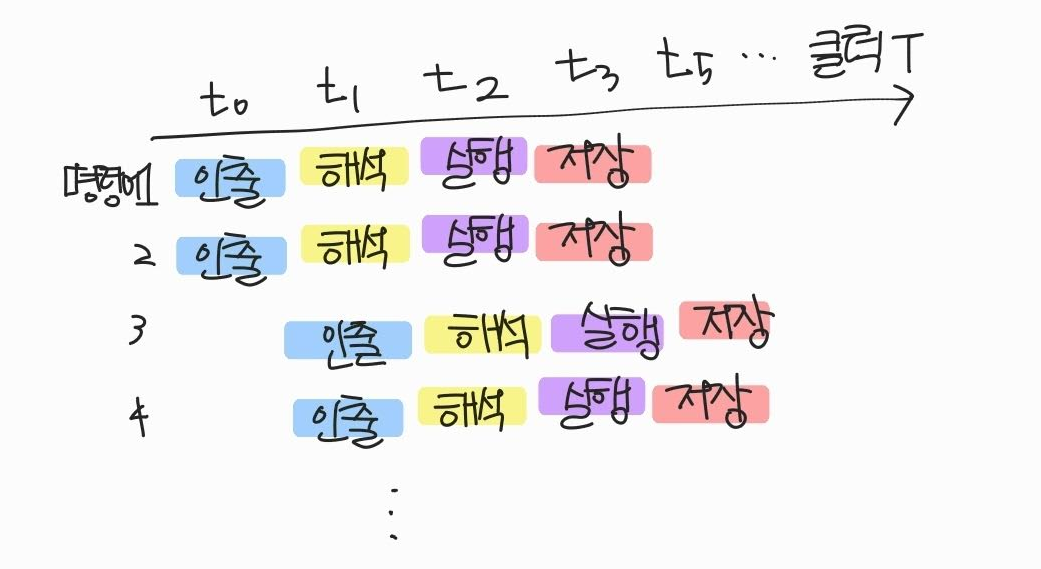 t0 t1 t2 t3 t5 ... 클럭 T
명령어1 인출 해석 실행 저장
2 인출 해석 실행 저장
3 인출 해석 실행 저장
4 인출 해석 실행 저장
⋮